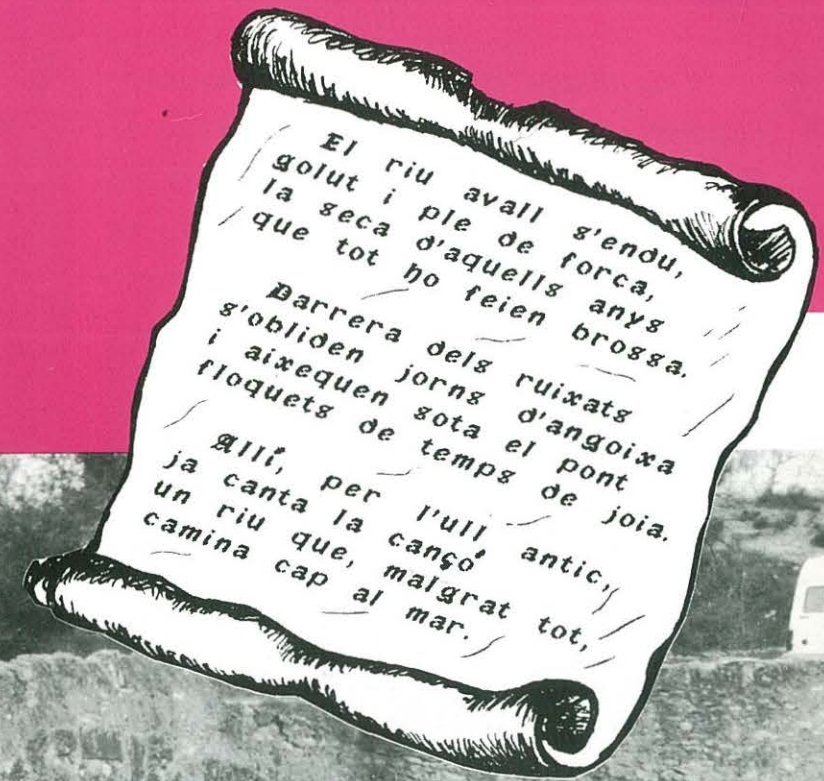 El riu avall s'endu,
golut i ple de forca,
la seca d'aquells anys
que tot ho feien brossa.
Darrera dels ruixats
s'obliden jorns d'angoixa
i aixequen sota el pont
floquets de temps de joia.
Allí, per l'ull antic,
ja canta la cançó
un riu que, malgrat tot,
camina cap al mar.